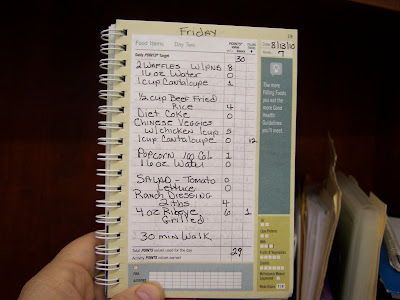 Friday
Food Items Day Two POINTS
Date 8/13/10
7
Daily POINTS Target 30
2 Waffles w/PNB 8
16 oz Water 0
1 cup Cantaloupe 1
1/2 cup Beef Fried
Rice 4
Diet Coke 0
Chinese Veggies
w/chicken 1cup 5
1 cup Cantaloupe 0 12
Popcorn 100 Cal 1
16 oz Water 0
Salad - Tomato 0
Lettuce 0
Ranch Dressing
2 tbs 4
4 oz Ribeye 6 1
Grilled
30 min Walk
Total POINTS values used for the day 29
Activity POINTS values earned
The more
Filling Foods
you eat the
more Good
Health
Guidelines
you'll meet.